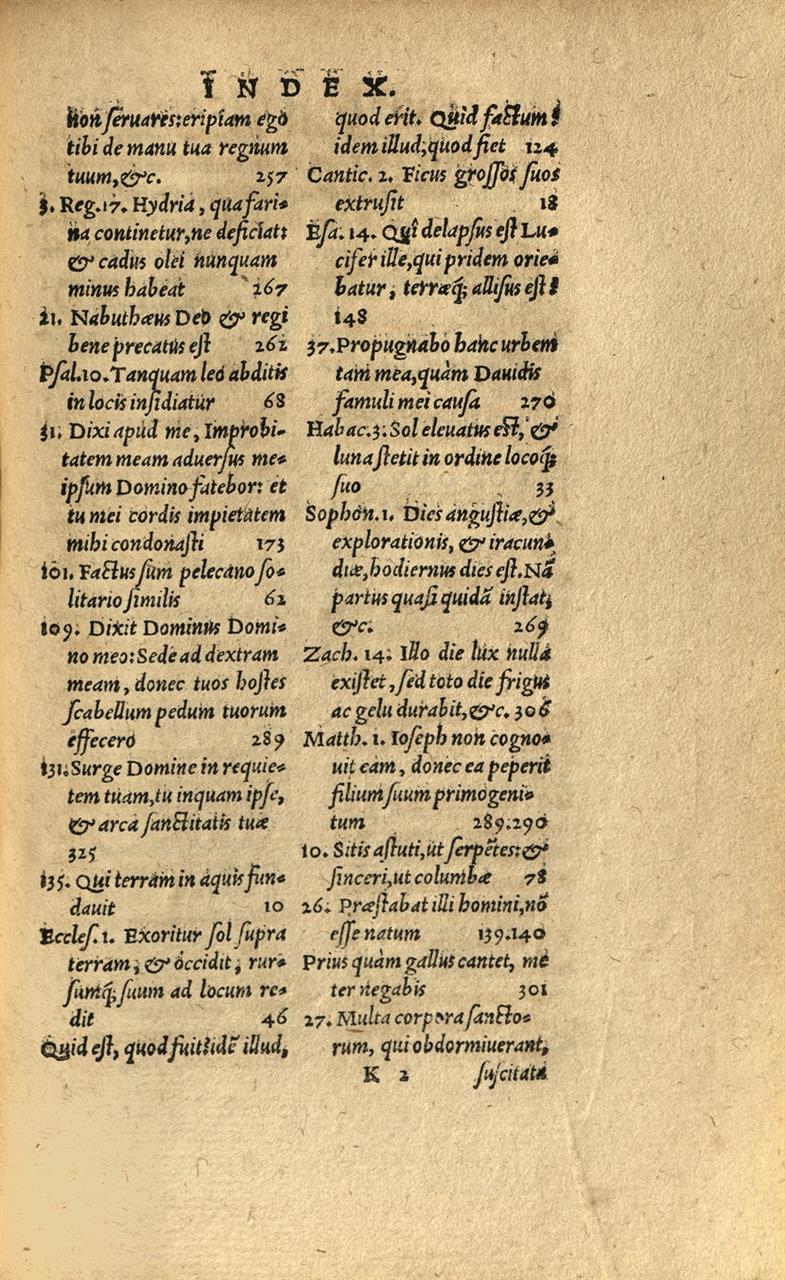 INDEX.
non ſeruares: eripiam ego
tibi de manu tua regnum
tuum, &c. 257
3. Reg. 17. Hydria, qua fari-
na continetur, ne deficiat:
& cadus olei nunquam
minus habeat 267
21. Nabuthæus Deo & regi
bene precatus eſt 262
Pſal. 10. Tanquam leo abditis
in locis inſidiatur 68
31. Dixi apud me, Improbi-
tatem meam aduerſus me-
ipſum Domino fatebor: et
tu mei cordis impietatem
mihi condonaſti 173
101. Factus ſum pelecano ſo-
litario ſimilis 62
109. Dixit Dominus Domi-
no meo: Sede ad dextram
meam, donec tuos hoſtes
ſcabellum pedum tuorum
effecero 289
131. Surge Domine in requie-
tem tuam, tu inquam ipſe,
& arca ſanctitatis tuæ
325
135. Qui terram in aquis fun-
dauit 10
Eccleſ. 1. Exoritur ſol ſupra
terram, & occidit, rur-
ſumq́; ſuum ad locum re-
dit 46
Quid eſt, quod fuit? idẽ illud,
quod erit. Quid factum?
idem illud, quod fiet 124
Cantic. 2. Ficus groſſos ſuos
extruſit 18
Eſa. 14. Quî delapſus eſt Lu-
cifer ille, qui pridem orie-
batur, terræq́; alliſus eſt?
148
37. Propugnabo hanc urbem
tam mea, quàm Dauidis
famuli mei cauſa 270
Habac. 3. Sol eleuatus eſt, &
luna ſtetit in ordine locoq́;
ſuo 33
Sophon. 1. Dies anguſtiæ, &
explorationis, & iracun-
diæ, hodiernus dies eſt. Nã
partus quaſi quidã inſtat,
&c. 269
Zach. 14. Illo die lux nulla
exiſtet, ſed toto die frigus
ac gelu durabit, &c. 306
Matth. 1. Ioſeph non cogno-
uit eam, donec ea peperit
filium ſuum primogeni-
tum 289.290
10. Sitis aſtuti, ut ſerpẽtes: &
ſinceri, ut columbæ 78
26. Præſtabat illi homini, nõ
eſſe natum 139.140
Prius quàm gallus cantet, me
ter negabis 301
27. Multa corpora ſancto-
rum, qui obdormiuerant,
K 2 ſuſcitata